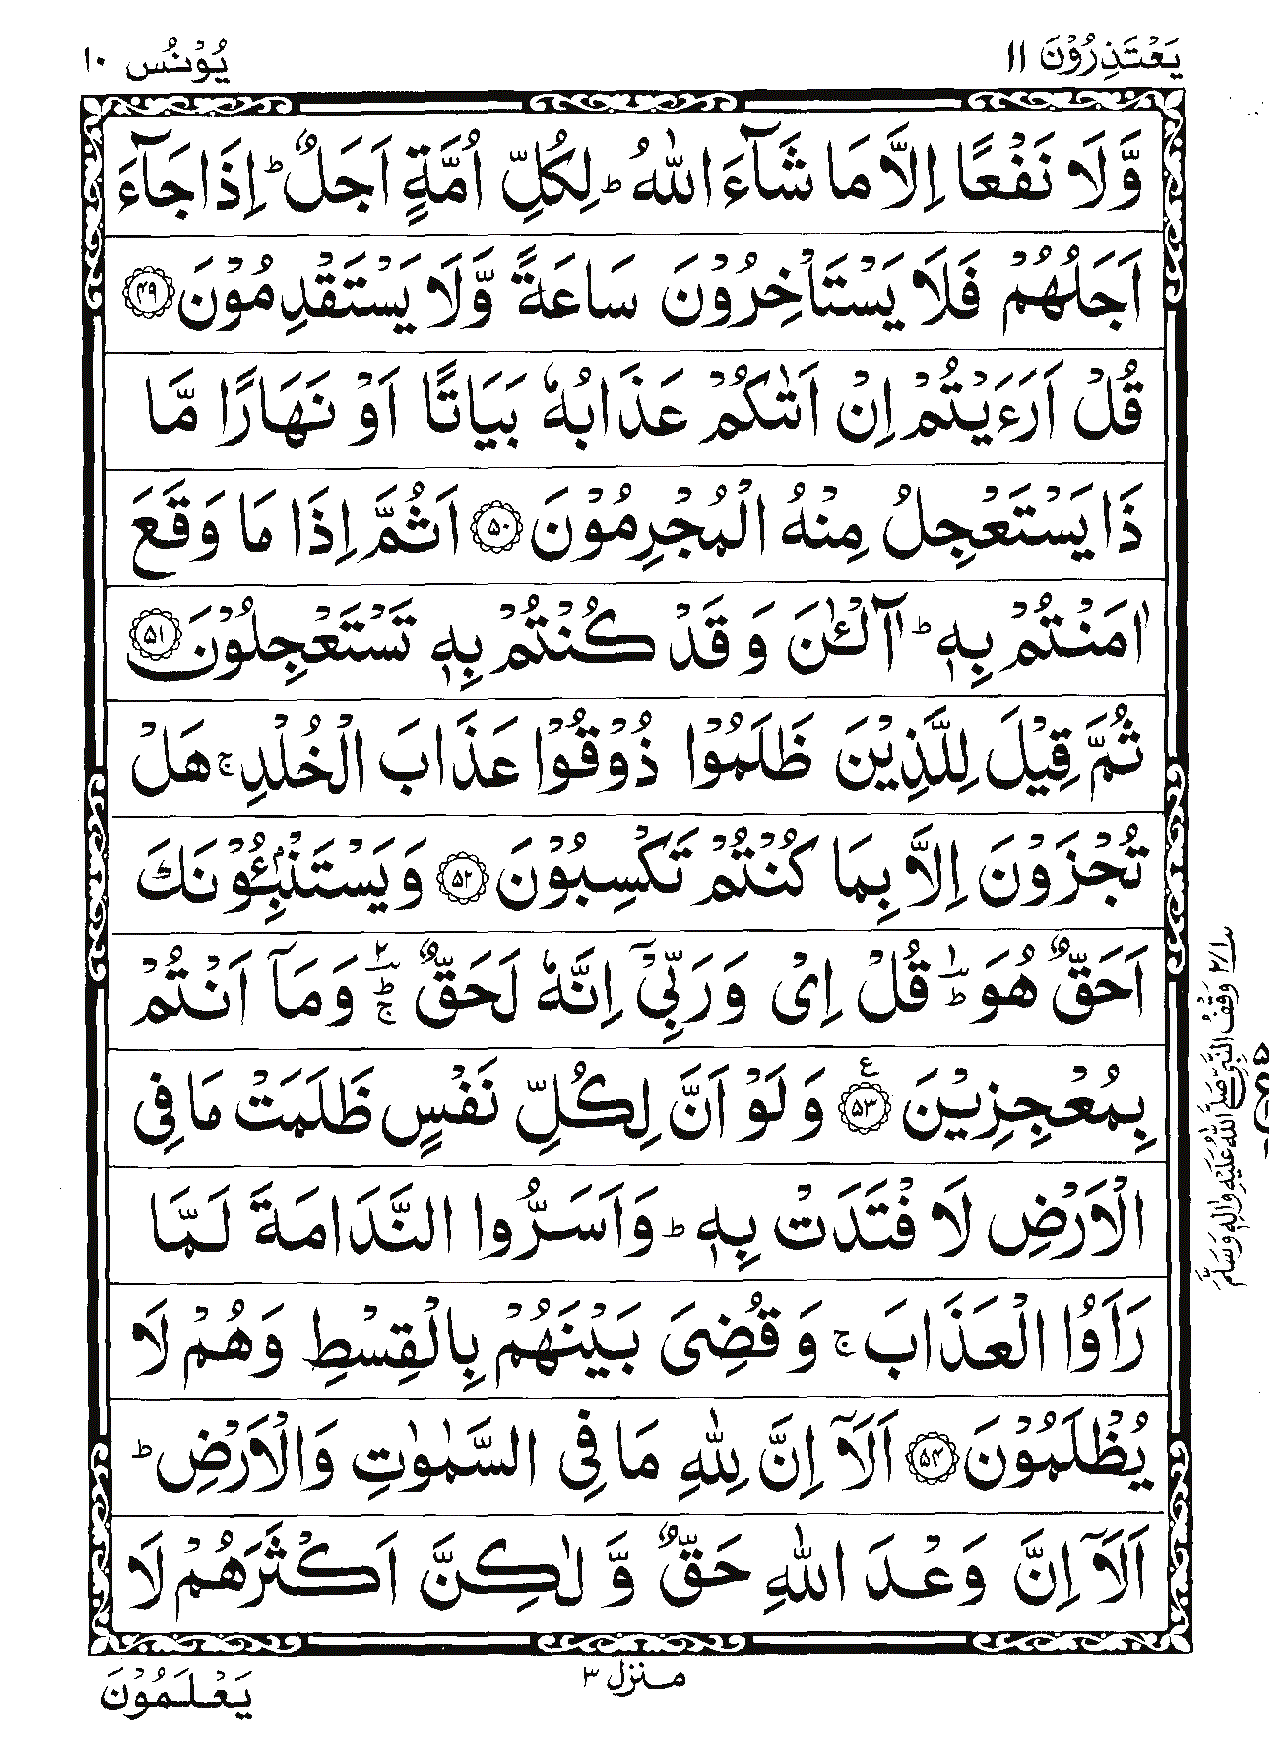 يَعْتَذِرُوْنَ ١١
يُوْنُس ١٠
وَّلَا نَفْعًا اِلَّا مَا شَآءَ اللّٰهُ ؕ لِكُلِّ اُمَّةٍ اَجَلٌ ؕ اِذَا جَآءَ
اَجَلُهُمْ فَلَا يَسْتَاْخِرُوْنَ سَاعَةً وَّلَا يَسْتَقْدِمُوْنَ ﴿۴۹﴾
قُلْ اَرَءَيْتُمْ اِنْ اَتٰىكُمْ عَذَابُهٗ بَيَاتًا اَوْ نَهَارًا مَّا
ذَا يَسْتَعْجِلُ مِنْهُ الْمُجْرِمُوْنَ ﴿۵۰﴾ اَثُمَّ اِذَا مَا وَقَعَ
اٰمَنْتُمْ بِهٖ ؕ آٰلْـٰٔنَ وَ قَدْ كُنْتُمْ بِهٖ تَسْتَعْجِلُوْنَ ﴿۵۱﴾
ثُمَّ قِيْلَ لِلَّذِيْنَ ظَلَمُوْا ذُوْقُوْا عَذَابَ الْخُلْدِ ۚ هَلْ
تُجْزَوْنَ اِلَّا بِمَا كُنْتُمْ تَكْسِبُوْنَ ﴿۵۲﴾ وَ يَسْتَنْۢبِـُٔوْنَكَ
اَحَقٌّ هُوَ ؕ قُلْ اِىْ وَ رَبِّىْۤ اِنَّهٗ لَحَقٌّ ؕۚ وَ مَاۤ اَنْتُمْ
بِمُعْجِزِيْنَ ﴿۵۳﴾ ع وَ لَوْ اَنَّ لِكُلِّ نَفْسٍ ظَلَمَتْ مَا فِى
الْاَرْضِ لَا فْتَدَتْ بِهٖ ؕ وَ اَسَرُّوا النَّدَامَةَ لَمَّا
رَاَوُا الْعَذَابَ ۚ وَ قُضِىَ بَيْنَهُمْ بِالْقِسْطِ وَ هُمْ لَا
يُظْلَمُوْنَ ﴿۵۴﴾ اَلَاۤ اِنَّ لِلّٰهِ مَا فِى السَّمٰوٰتِ وَ الْاَرْضِ ؕ
اَلَاۤ اِنَّ وَعْدَ اللّٰهِ حَقٌّ وَّ لٰكِنَّ اَكْثَرَهُمْ لَا
وَقْفُ النَّبِىِّ صَلَّى اللّٰهُ عَلَيْهِ وَاٰلِهٖ وَسَلَّمَ
منزل ۳
يَعْلَمُوْنَ